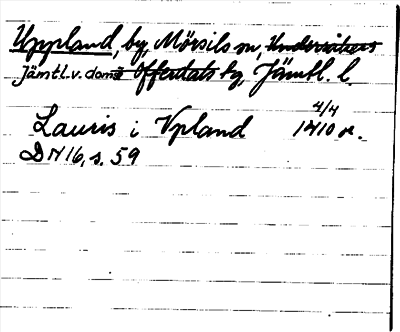 Uppland, by, Mörsils sn, Undersåkers
Jämtl. v. doms Offerdals tg, Jämtl. l.
4/4
Lauris i Vpland 1410 or.
DN 16, s. 59